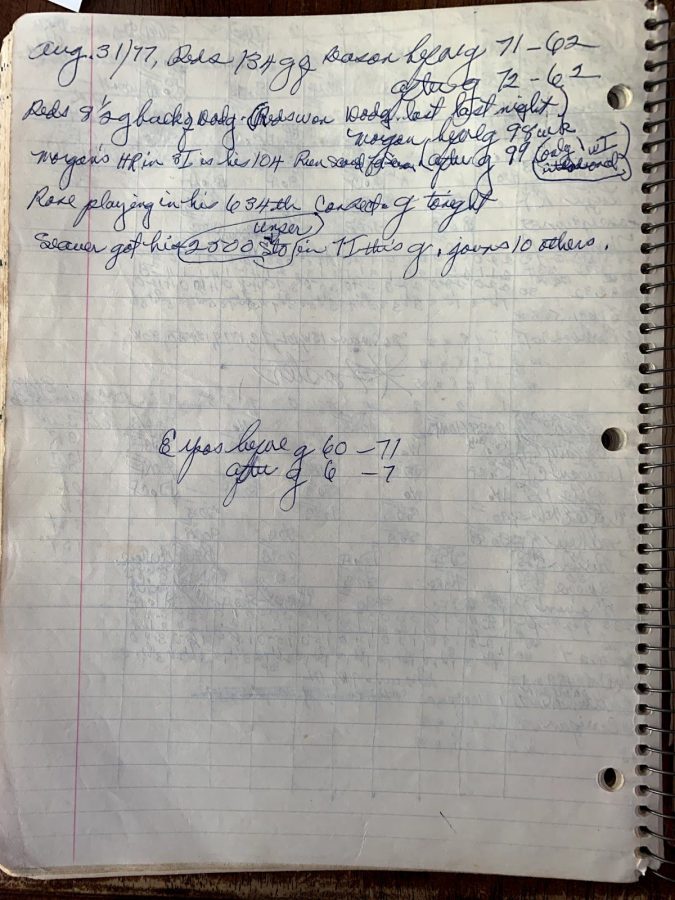 Aug. 31/77, Reds 134 g of season before g 71-62
after g 72-62
Reds 8 1/2 g back of Dodg. (Reds won Dodg. lost last night)
Morgan before g 98 
Morgan's HR in 3I is his 104 Run scored after g 99 (only 1 I
Rose playing in his 634th consec. g tonight
Seaver got his 2500 SO in 7I this g, joins 10 others.
Expos before g 60-71
after g 6 -7